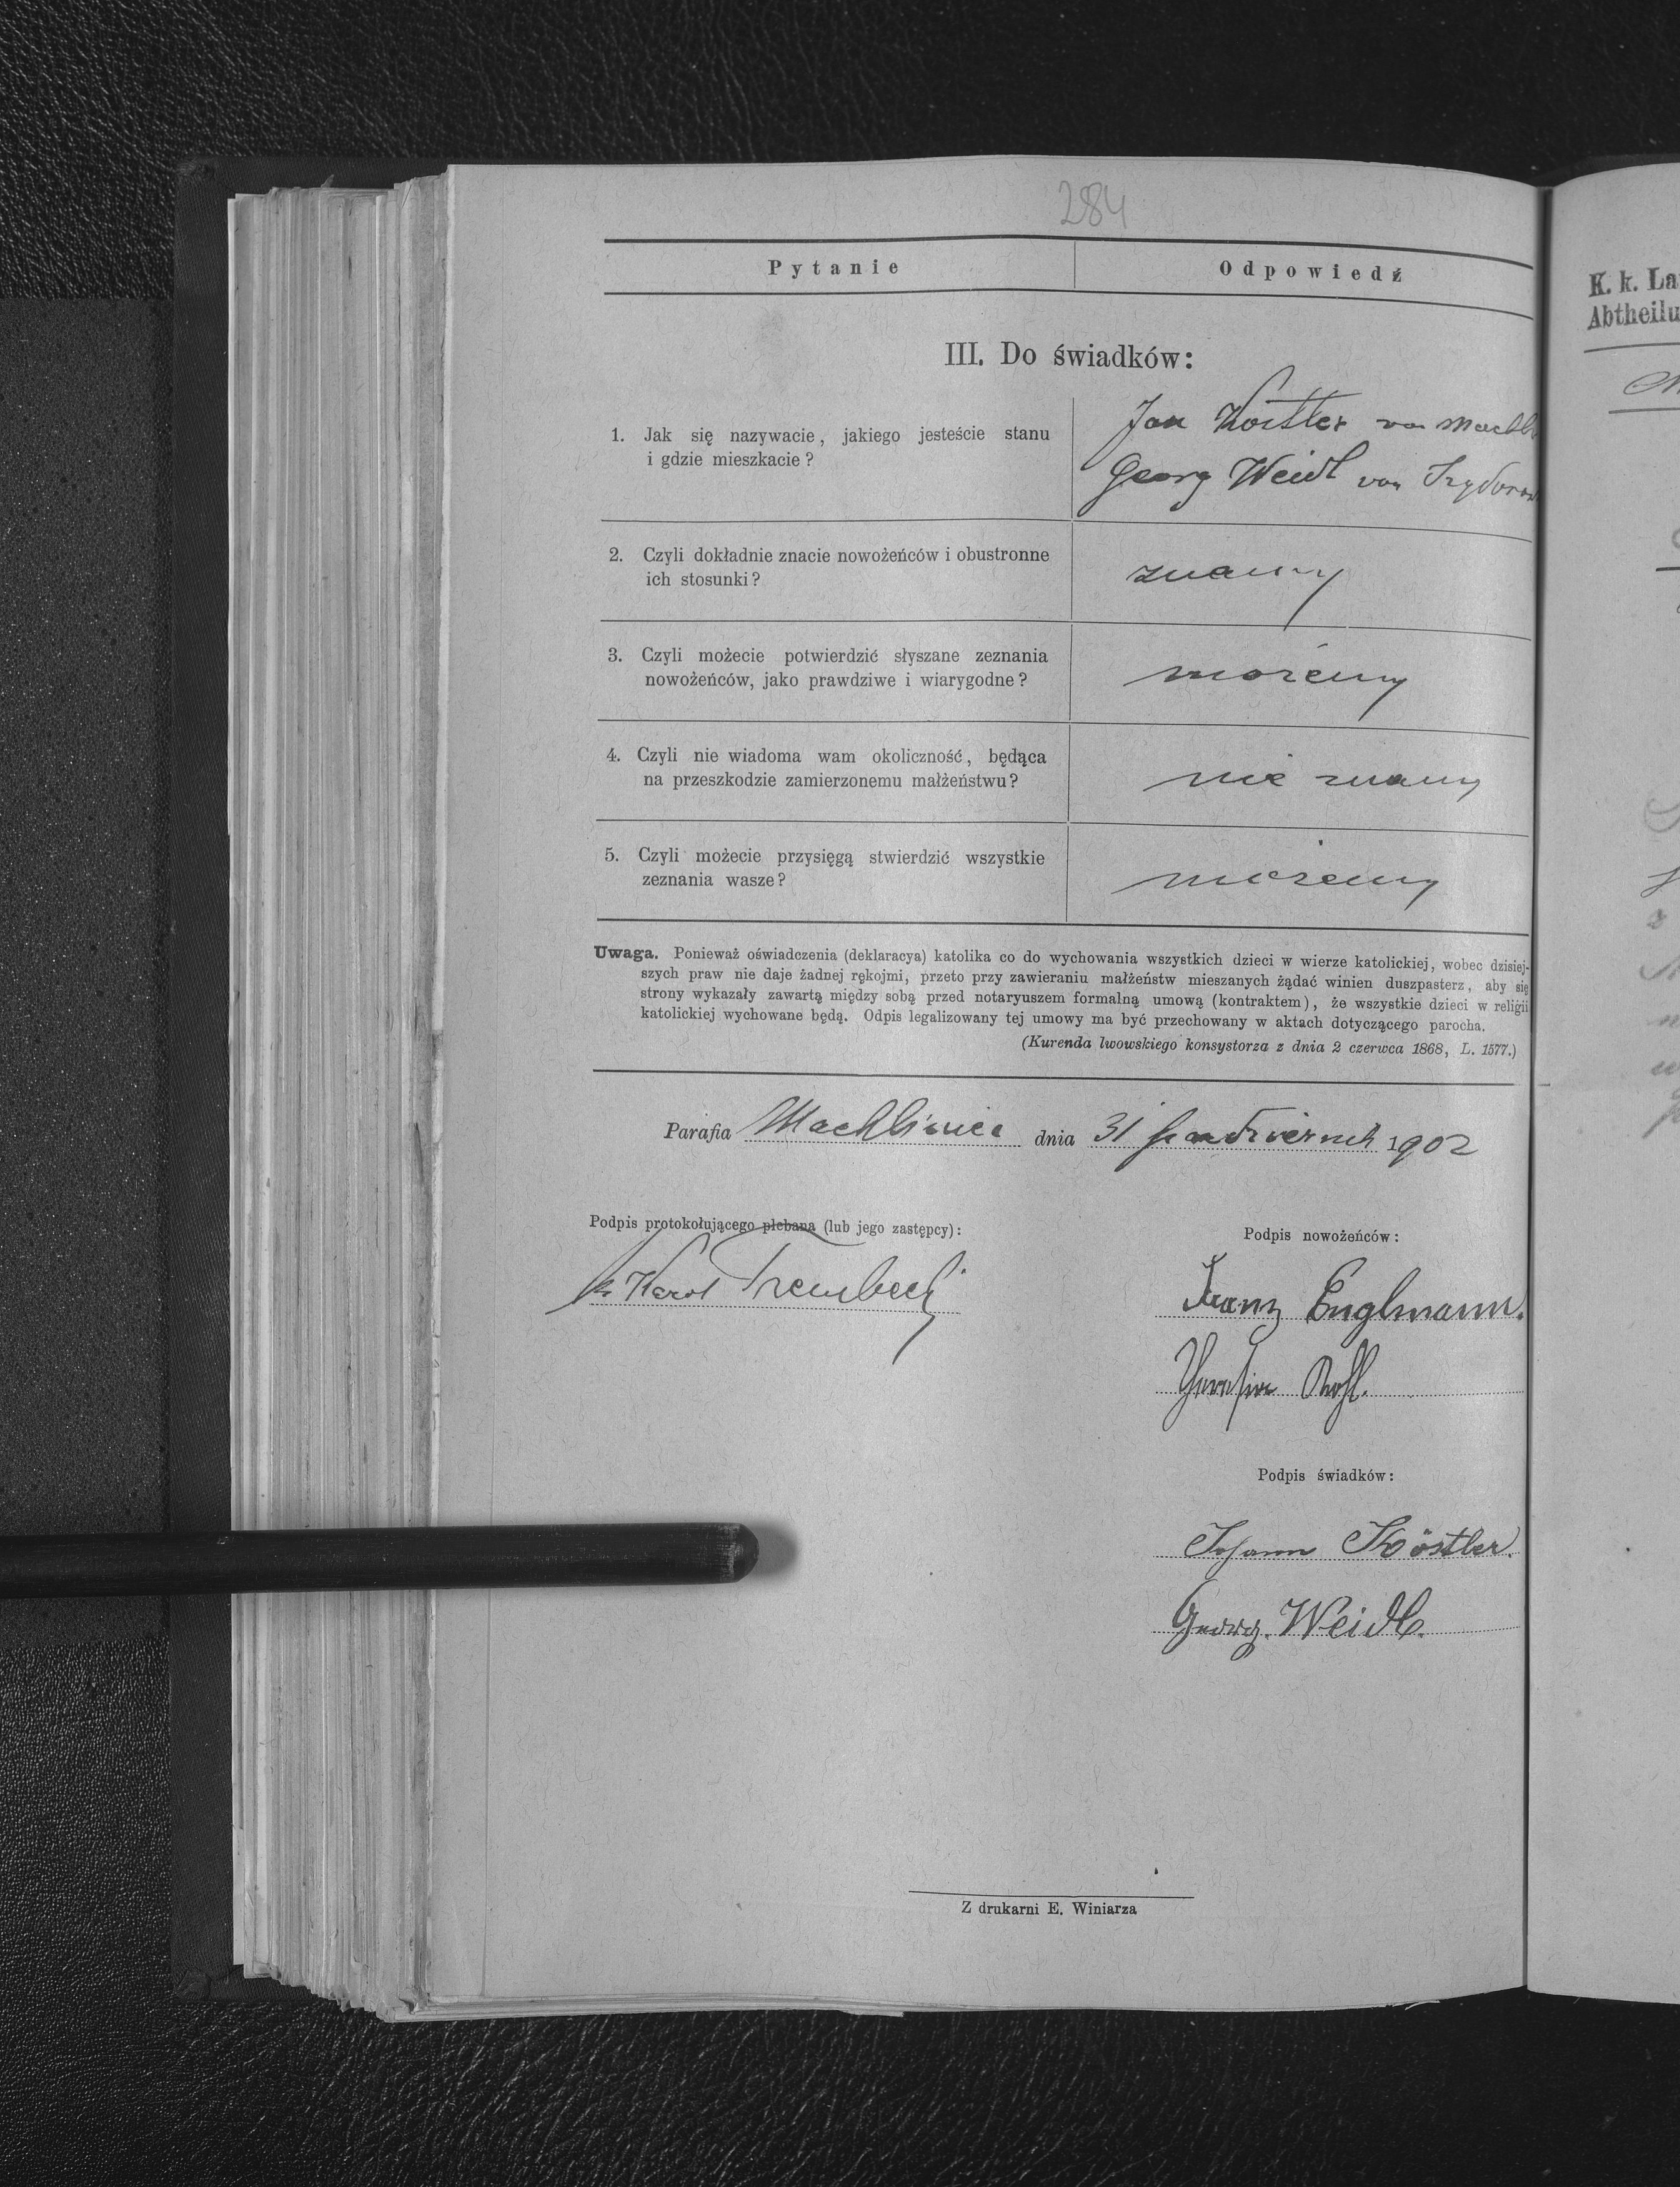 284
Pytanie
Odpowiedź
III. Do świadków:
1. Jak się nazywacie, jakiego jesteście stanu
i gdzie mieszkacie?
Jan Köstler von Machli
Georg Weidl von
2. Czyli dokładnie znacie nowożeńców i obustronne
ich stosunki?
znamy
3. Czyli możecie potwierdzić słyszane zeznania
nowożeńców, jako prawdziwe i wiarygodne?
możemy
4. Czyli nie wiadoma wam okoliczność, będąca
na przeszkodzie zamierzonemu małżeństwu?
nie znamy
5. Czyli możecie przysięgą stwierdzić wszystkie
zeznania wasze?
możemy
Uwaga. Ponieważ oświadczenia (deklaracya) katolika co do wychowania wszystkich dzieci w wierze katolickiej, wobec dzisiej-
szych praw nie daje żadnej rękojmi, przeto przy zawieraniu małżeństw mieszanych żądać winien duszpasterz, aby się
strony wykazały zawartą między sobą przed notaryuszem formalną umową (kontraktem), że wszystkie dzieci w religii
katolickiej wychowane będą. Odpis legalizowany tej umowy ma być przechowany w aktach dotyczącego parocha.
(Kurenda lwowskiego konsystorza z dnia 2 czerwca 1868, L. 1577.)
Parafia Machliniec dnia 31 1902
Podpis protokołującego plebana (lub jego zastępcy):
Karol Trembecki
Podpis nowożeńców:
Franz Englmann.
Podpis świadków:
Johann Köstler.
Georg. Weidl.
Z drukarni E. Winiarza
K. k. La
Abtheilu